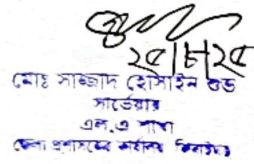 ২৫|৮|২৫
মোঃ সাজ্জাদ হোসাইন শুভ
সার্ভেয়ার
এল.এ শাখা
জেলা প্রশাসকের কার্যালয়